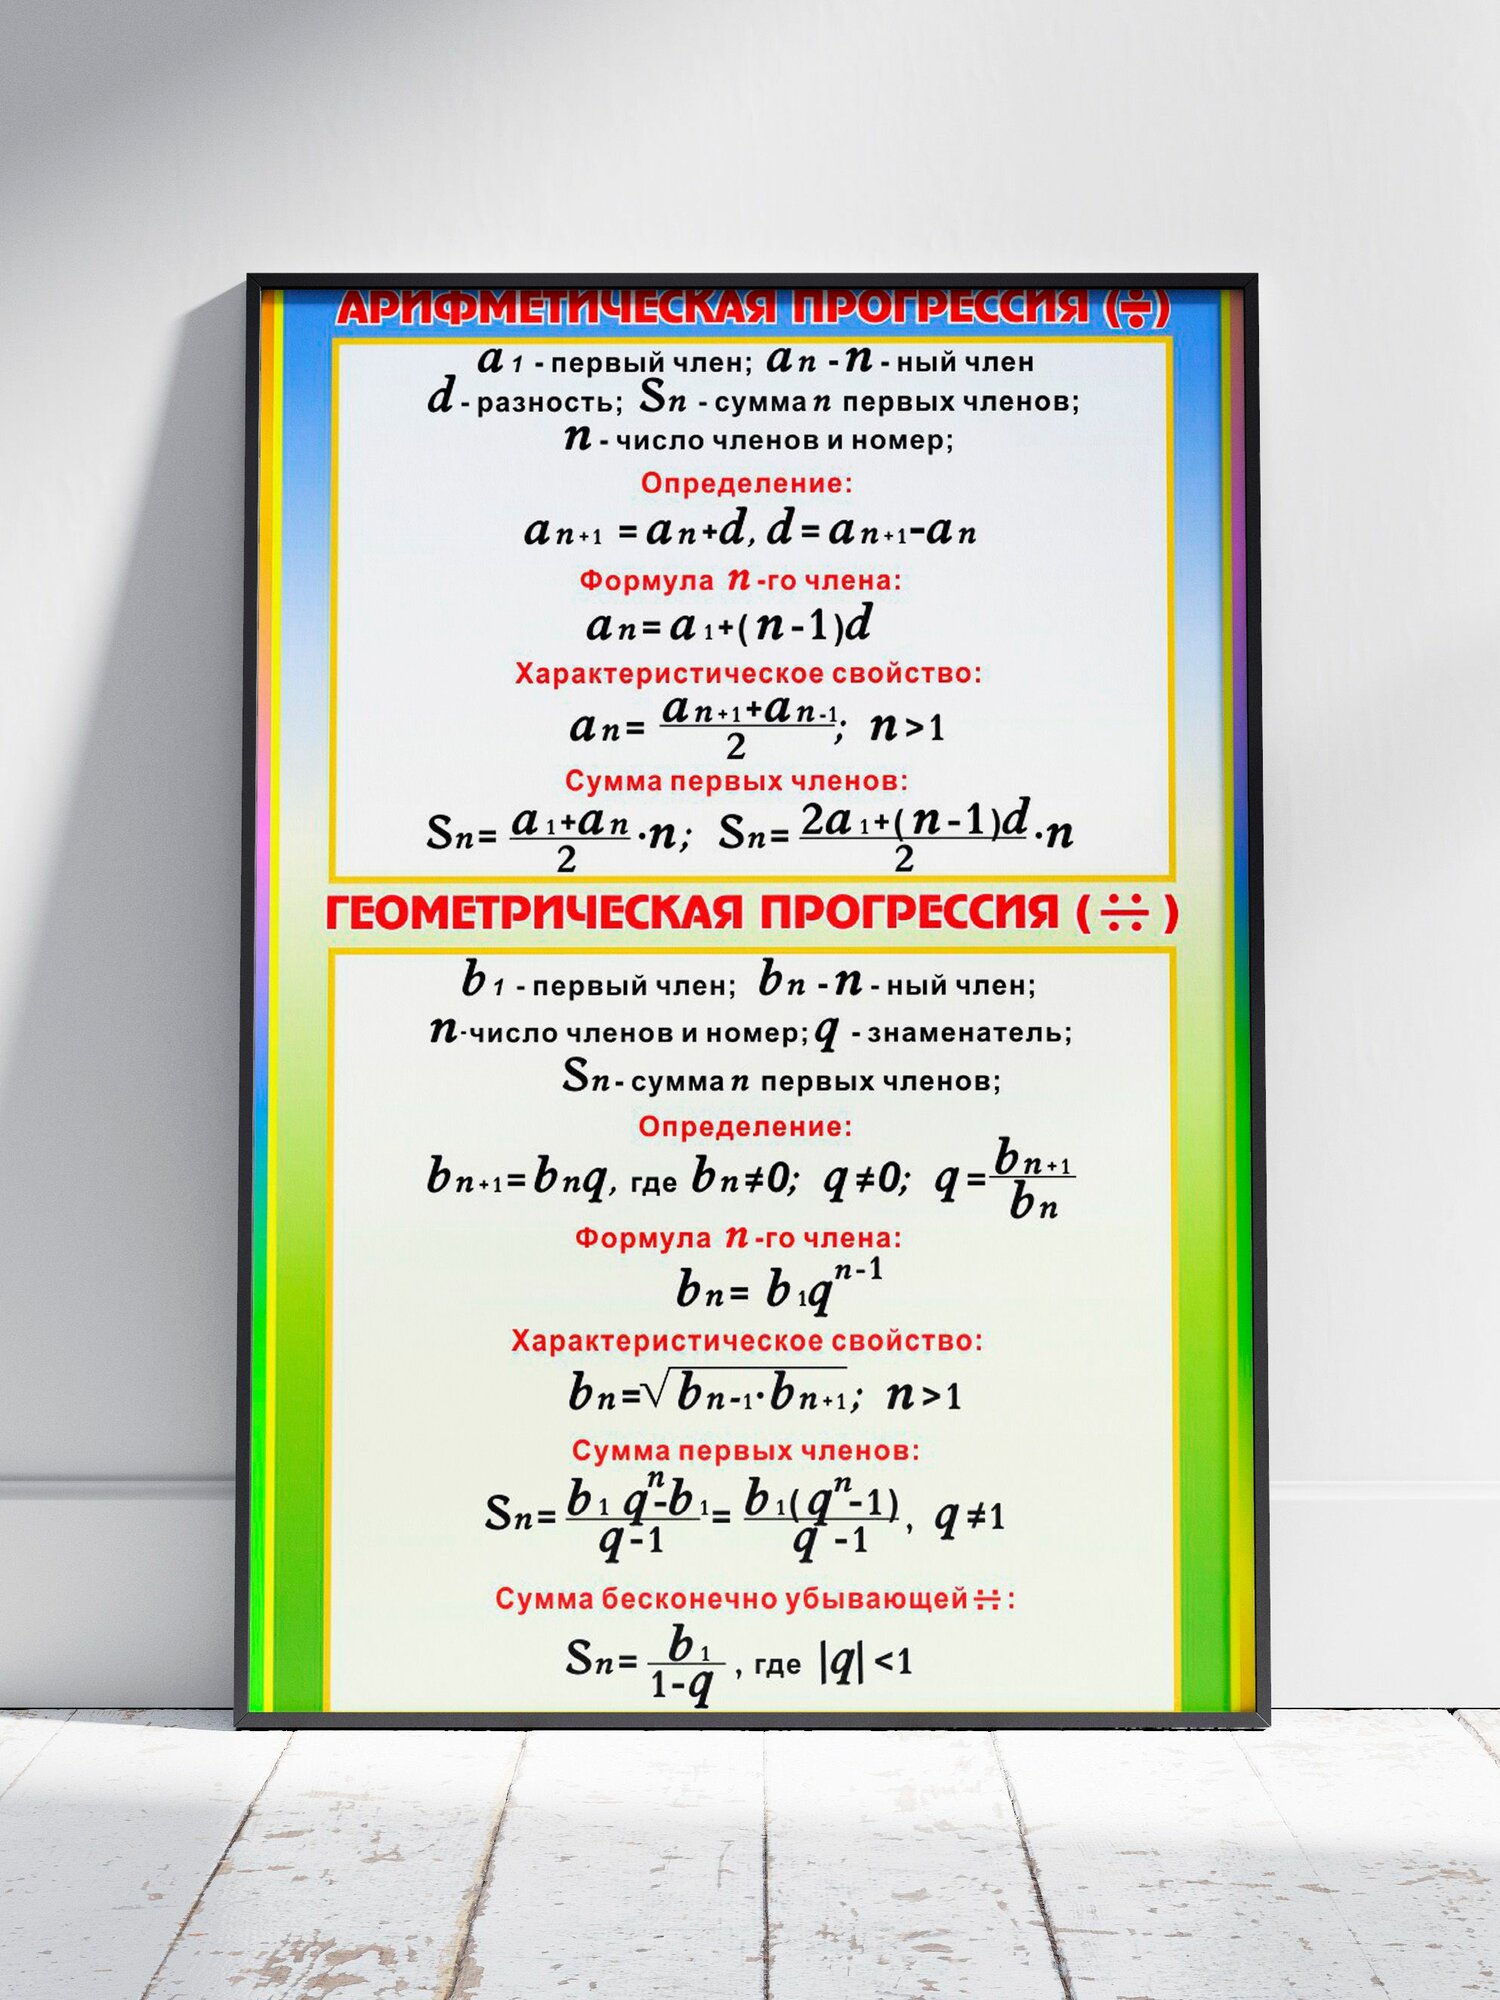 АРИФМЕТИЧЕСКАЯ ПРОГРЕССИЯ (÷)
a₁ - первый член; aₙ - n - ный член
d - разность; Sₙ - сумма n первых членов;
n - число членов и номер;
Определение:
aₙ₊₁ = aₙ+d, d = aₙ₊₁-aₙ
Формула n -го члена:
aₙ = a₁+(n-1)d
Характеристическое свойство:
aₙ = (aₙ₊₁+aₙ₋₁)/2; n > 1
Сумма первых членов:
Sₙ = (a₁+aₙ)/2 ·n; Sₙ = (2a₁+(n-1)d)/2 ·n
ГЕОМЕТРИЧЕСКАЯ ПРОГРЕССИЯ (∺)
b₁ - первый член; bₙ - n - ный член;
n-число членов и номер; q - знаменатель;
Sₙ - сумма n первых членов;
Определение:
bₙ₊₁ = bₙq, где bₙ≠0; q≠0; q = bₙ₊₁/bₙ
Формула n -го члена:
bₙ = b₁qⁿ⁻¹
Характеристическое свойство:
bₙ=√(bₙ₋₁·bₙ₊₁); n > 1
Сумма первых членов:
Sₙ = (b₁qⁿ-b₁)/(q-1) = (b₁(qⁿ-1))/(q-1), q ≠ 1
Сумма бесконечно убывающей ∺:
Sₙ = b₁/(1-q), где |q| <1